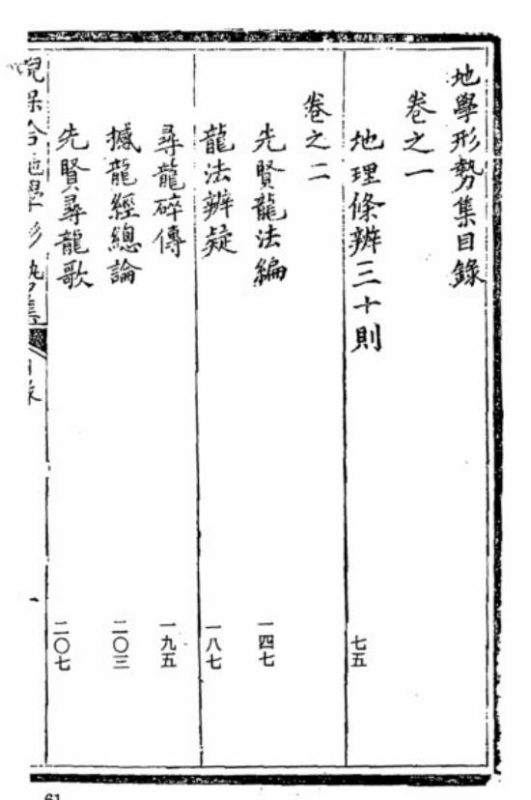 地學形勢集目錄
卷之一
地理條辨三十則 七五
卷之二
先賢龍法編 一四七
龍法辨疑 一八七
尋龍碎傳 一九五
撼龍經總論 二〇三
先賢尋龍歌 二〇七
地學形勢集 目錄 一
61